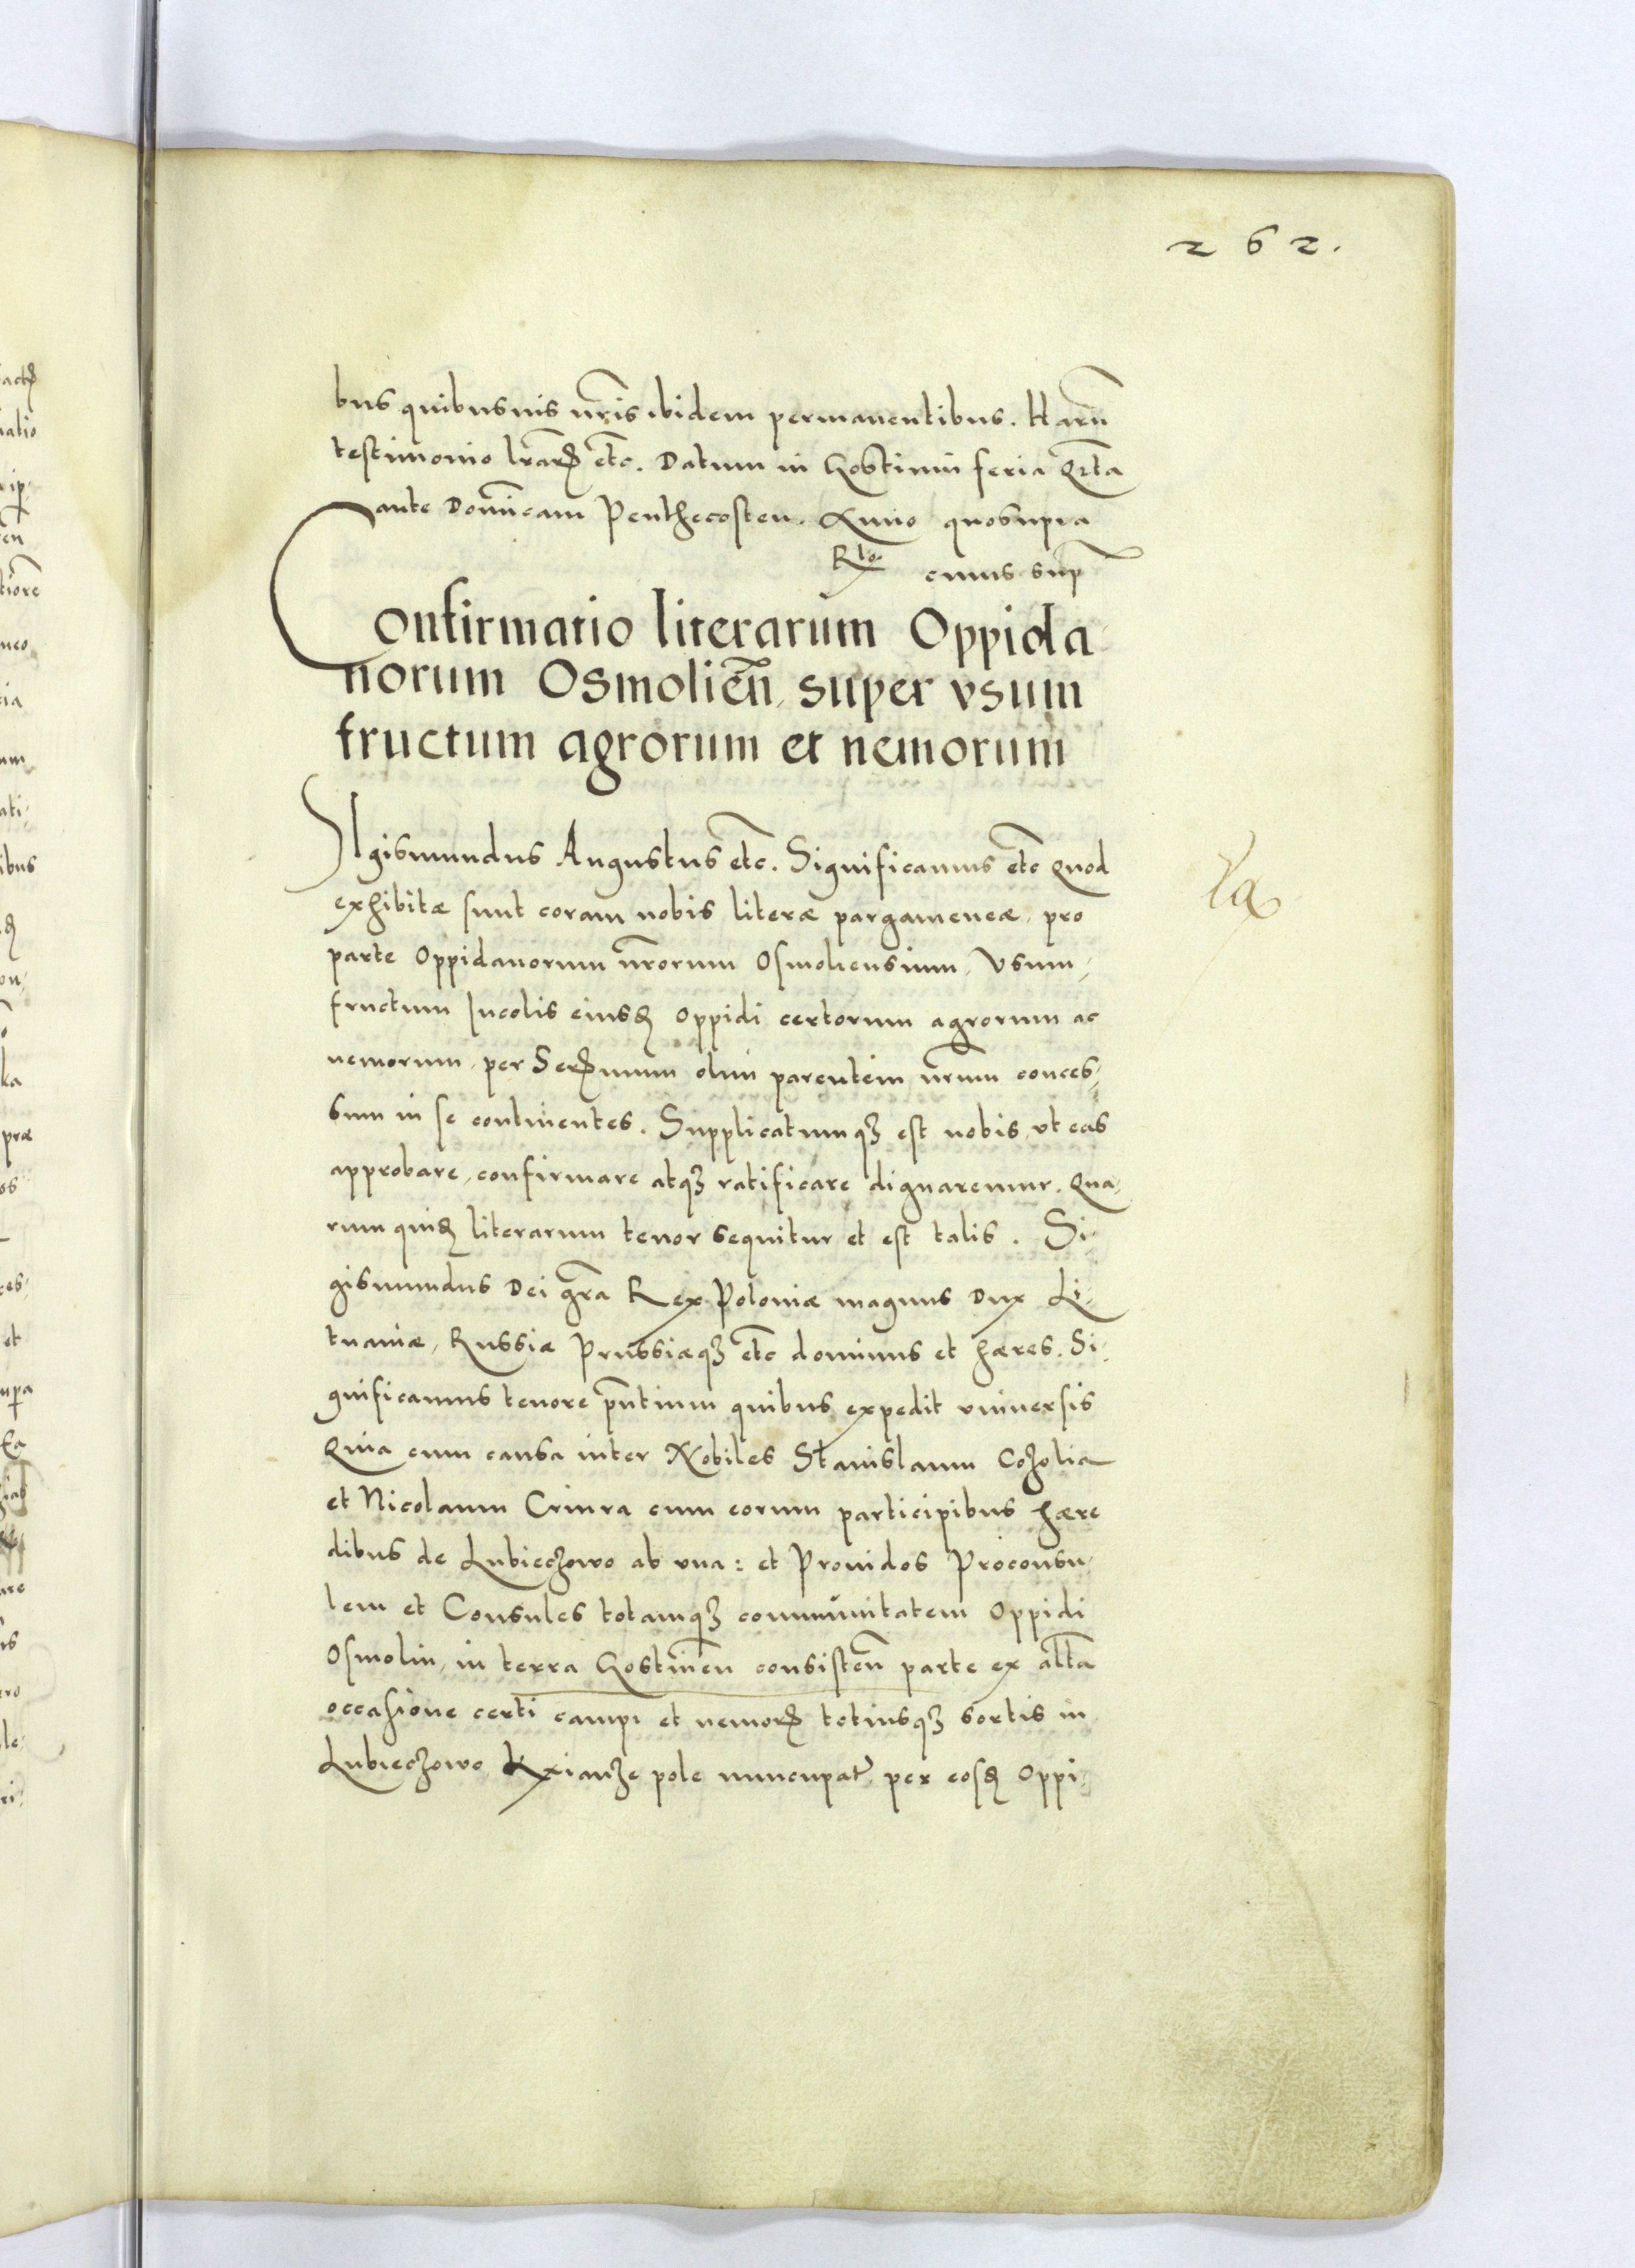 262.
bus quibusuis nr̃is ibidem permanentibus. Harũ
testimonio lr̃arꝝ etc̃. Datum in Gostinin feria Qr̃ta
ante Domĩcam Penthecosten. Anno quosupra
Rᵗⁱᵒ cuius sup̃
Confirmatio literarum Oppida
norum Osmolieñ, super vsum
fructum agrorum et nemorum
SIgismundus Augustus etc̃. Significamus etc̃ Quod
exhibitæ sunt coram nobis literæ pargameneæ, pro
parte Oppidanorum nr̃orum Osmoliensium, Vsum,
fructum Incolis eiusꝺ Oppidi certorum agrorum ac
nemorum, per Serꝝmum olim parentem nr̃um conces,
sum in se continentes. Supplicatumqꝫ est nobis, vt eas
approbare, confirmare atqꝫ ratificare dignaremur. Qua,
rum quiꝺ literarum tenor sequitur et est talis. Si,
gismundus Dei gr̃a Rex Poloniæ magnus Dux Li,
tuaniæ, Russiæ Prussiæqꝫ etc̃ dominus et hæres. Si,
gnificamus tenore pñtium quibus expedit vniuersis
Quia cum causa inter Nobiles Stanislaum Cozolia
et Nicolaum Criura cum eorum participibus hære
dibus de Lubieczowo ab vna: et Prouidos Proconsu,
lem et Consules totamqꝫ communitatem Oppidi
Osmolin, in terra Gostineñ consisteñ parte ex alt̃a
occasione certi campi et nemorꝝ totiusqꝫ sortis in
Lubieczowo Kxianze pole nuncupat̃ per eosꝺ Oppi,